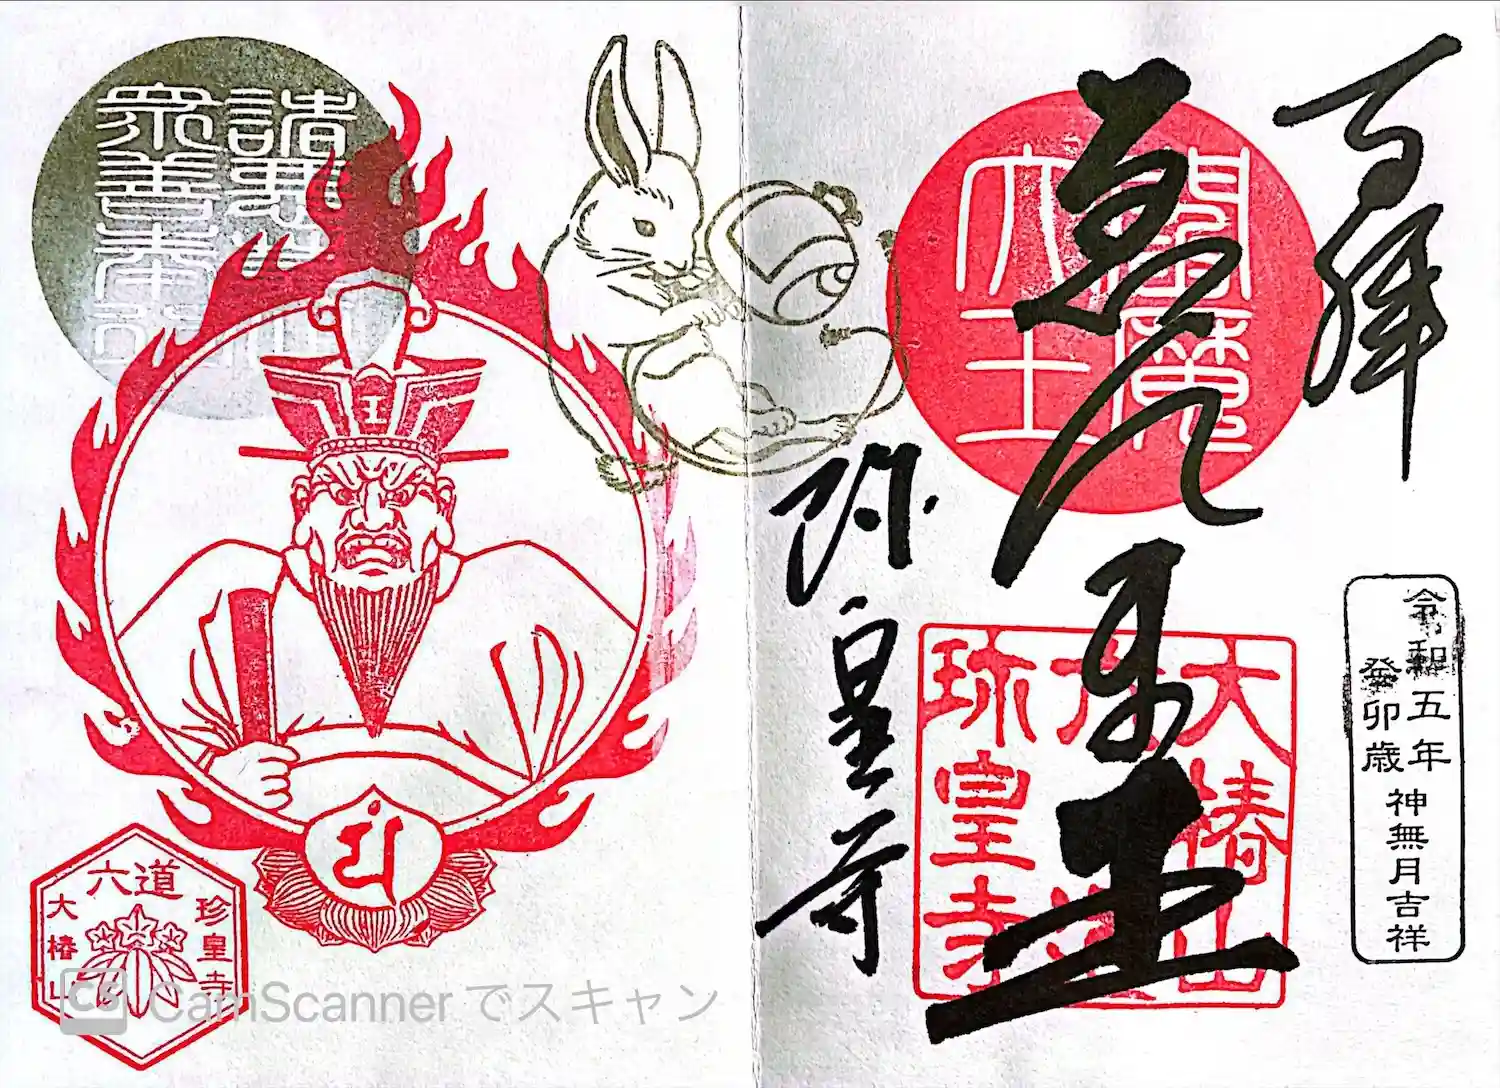 閻魔
大王
珍皇寺
大椿山
六道
珍皇寺
令和五年
癸卯歳
神無月吉祥
諸悪莫作
衆善奉行
王
六道
珍皇寺
大椿山
CS CamScanner でスキャン